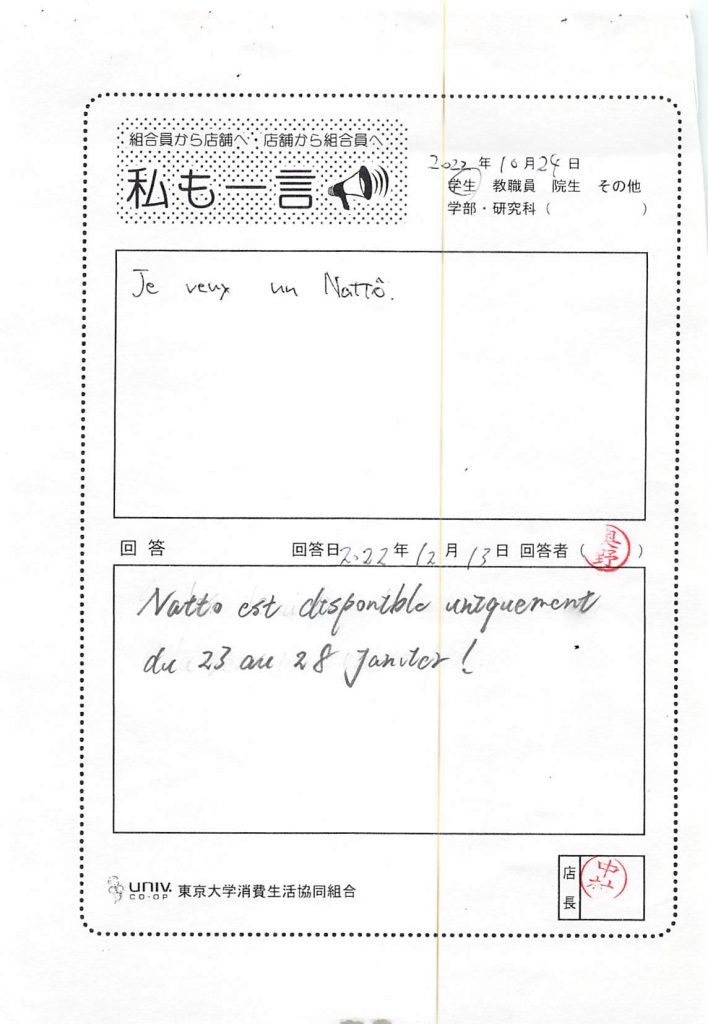 組合員から店舗へ・店舗から組合員へ
私も一言
2022年10月24日
学生 教職員 院生 その他
学部・研究科( )
Je veux un Nattô.
回答 回答日2022年12月13日 回答者( )
Natto est disponible uniquement
du 23 au 28 Janvier!
店長 中村
UNIV. CO-OP 東京大学消費生活協同組合